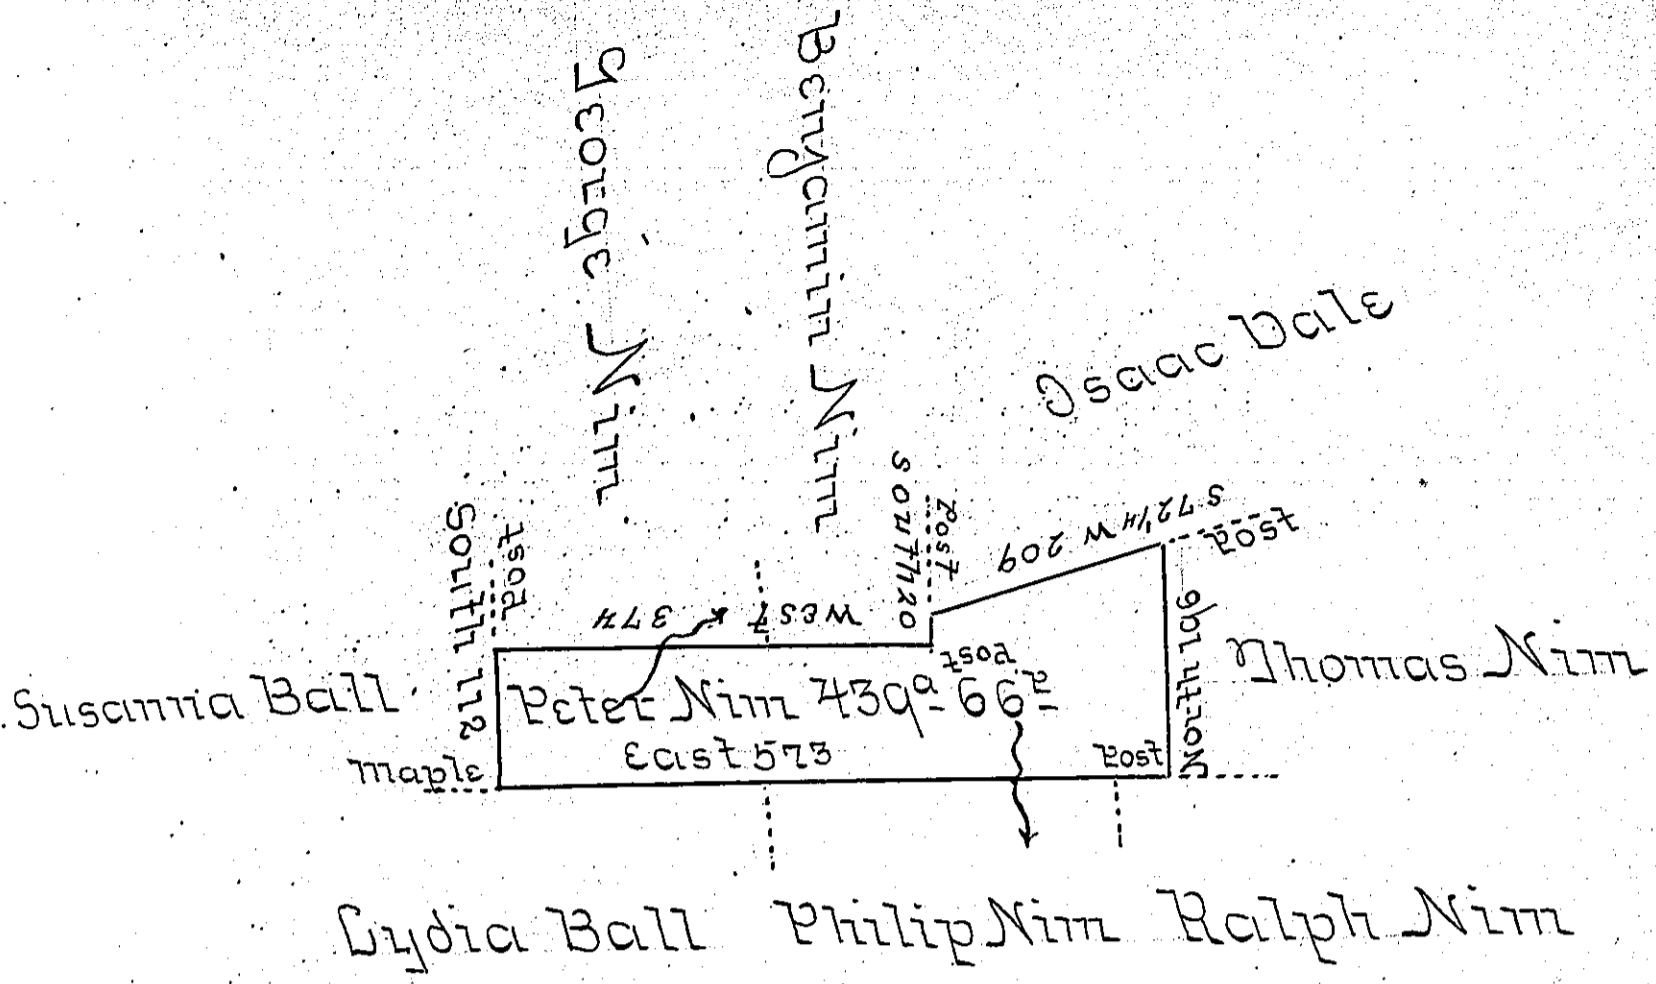 George Nim
Benjamin Nim
Isaac Dale
South 112
Post
West 374
South 20
Post
S 72 1/4 W 209
Post
North 196
Thomas Nim
Susanna Ball
Peter Nim 439a 66p
Post
East 573
Maple
Post
Lydia Ball
Philip Nim
Ralph Nim